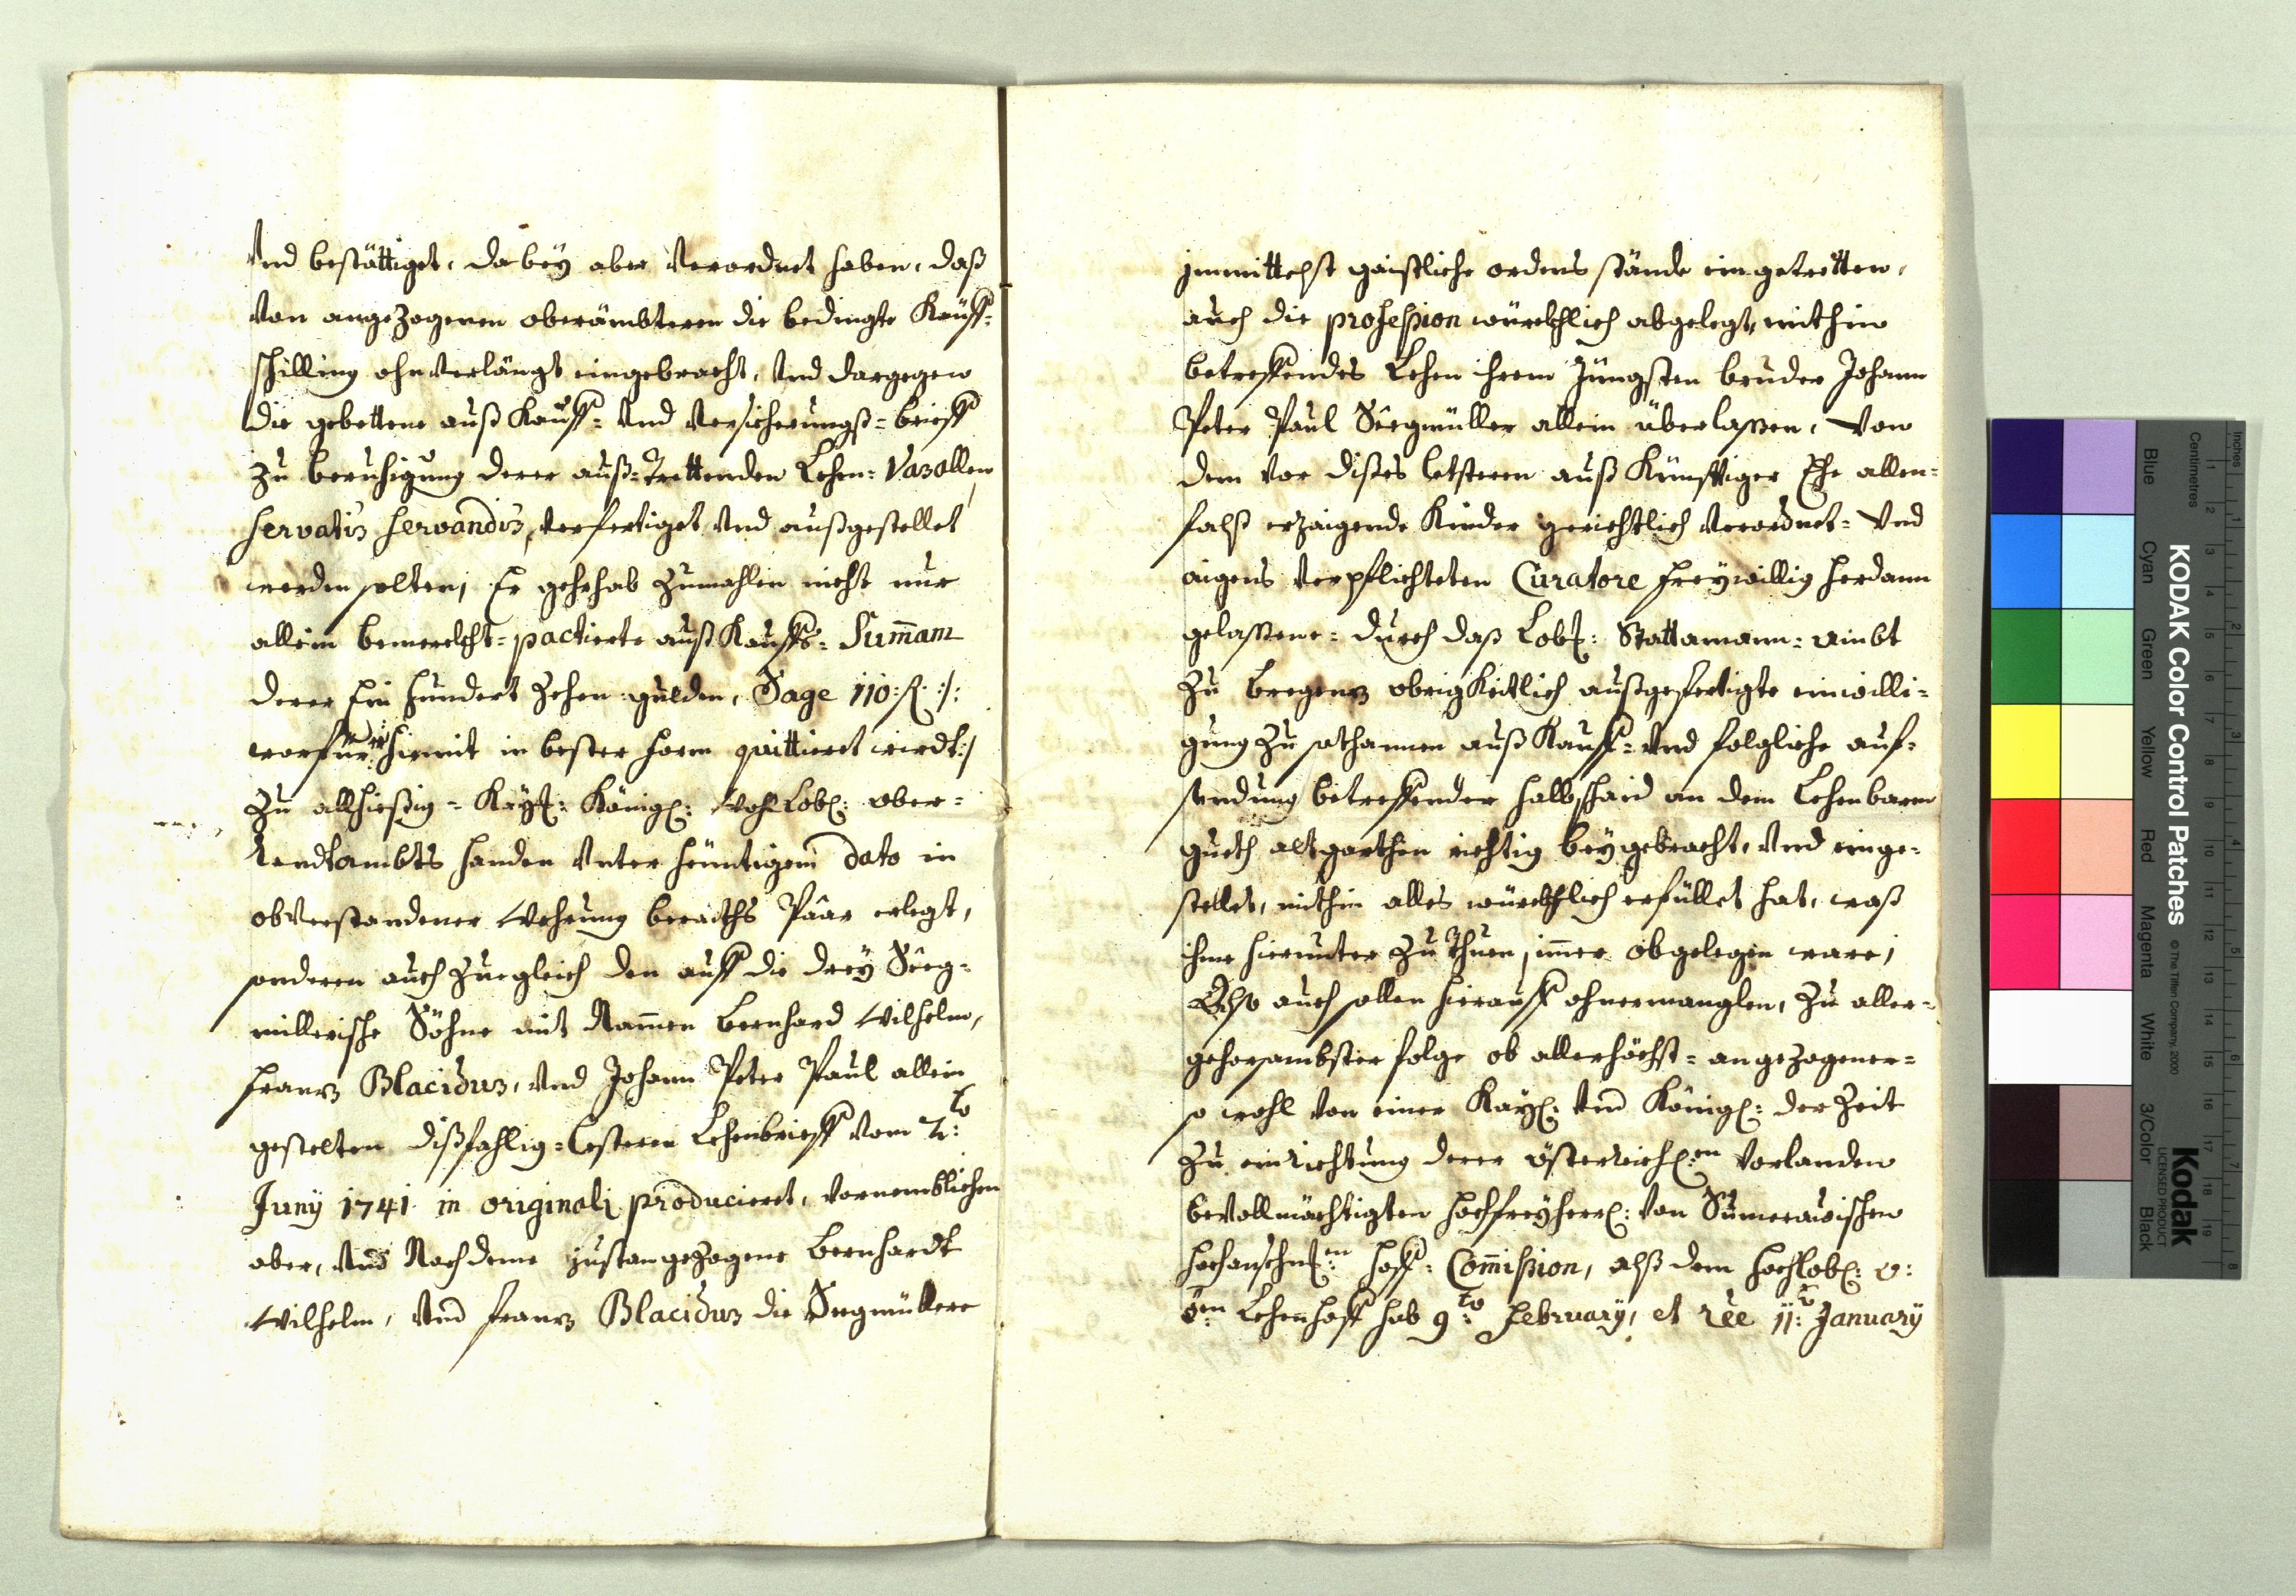 Vnd bestättiget, dabeÿ aber Verordnet haben, daß
Von angezogenen oberämbteren die bedingte Kauff-
schilling ohnverlängt eingebracht, Vnd dargegen
die gebettene auß Kauff- Vnd Versicherungß-brieff
zu beruhigung derer auß-Trettenden Lehen-Vasallen
servatis servandis, Verfertiget Vnd außgestellet
werden solten, Er gehrhab zumahlen nicht nur
allein bemerckht-pactierte auß Kauffs-Summam
derer Ein hundert Zehen gulden, Sage 110: fl. :/:
worfür hiemit in bester form quittieret wirdt :/
zu allhießig-Kaÿl: Königl: WohlLobl: ober-
Vendtambts handen Vnter heüntigem dato in
obVerstandener Wehrung beraiths Paar erlegt,
sonderen auch zuegleich den auff die dreÿ Seeg-
millerische Söhne mit Nammen Bernhard Wilhelm,
Franz Blacidus, Vnd Johann Peter Paul allein
gestelten dißfahlig-lesteren Lehenbrieff Vom 2:to
Junÿ 1741 in originali producieret, Vornemblichen
aber, Vnd Nachdeme justangezogene Bernhardt
Wilhelm, Vnd Franz Blacidus die Seegmüllere
jmmittelst gaistliche ordens stände eingetretten,
auch die profession würckhlich abgelegt, mithin
betreffendes Lehen ihrem Jüngsten bruder Johann
Peter Paul Seegmüller allein überlassen, Von
dem Vor dißes letsteren auß Künfftiger Ehe allen-
falß erzaigende Kinder gerichtlich Verordnet- Vnd
aigens Verpflichteten Curatore freÿwillig herdann
gelassene- durch daß Lobl: Stattamann-ambt
zu Bregenz obrigKeitlich außgefertigte einwilli-
gung zu sothannen auß Kauff- Vnd folgliche auf-
sendung betreffender halbschaid an dem Lehenbaren
gueth altgarthen richtig beÿgebracht, Vnd einge-
stellet, mithin alles würckhlich erfüllet hat, waß
ihme hierunter zu Thuen immer obgelegen ware,
Alß auch sollen hierauff ohnermanglen, zu aller-
gehorsambster folge ob allerhöchst-angezogener-
so wohl Von einer Kaÿl: Vnd Königl: der Zeit
zu einrichtung derer österreichl:en Vorlanden
bevollmächtigten hochfreÿherrl: Von Sumerauischen
hochanschnl:en hoff-Commission, alß dem hochlobl: o:
ö:en Lehenhoff sub 9:to February, et rèe 11:to January
KODAK Color Control Patches
© The Tiffen Company, 2000
Kodak
LICENSED PRODUCT
Inches
Centimetres
Blue
Cyan
Green
Yellow
Red
Magenta
White
3/Color
Black